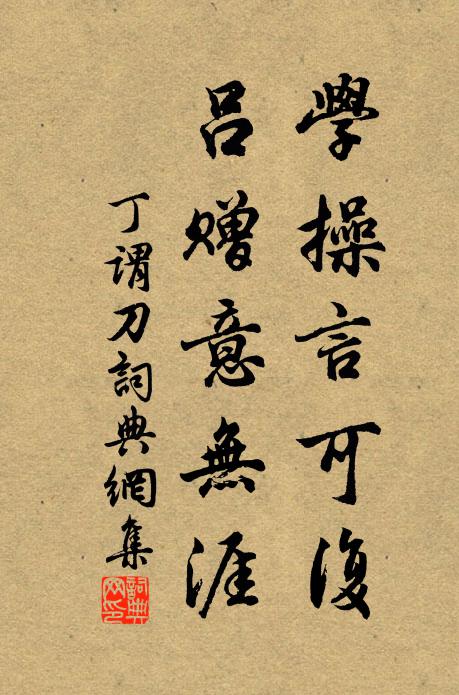 學操言可復
呂贈意無涯
丁謂刀詞典網集
詞典网印